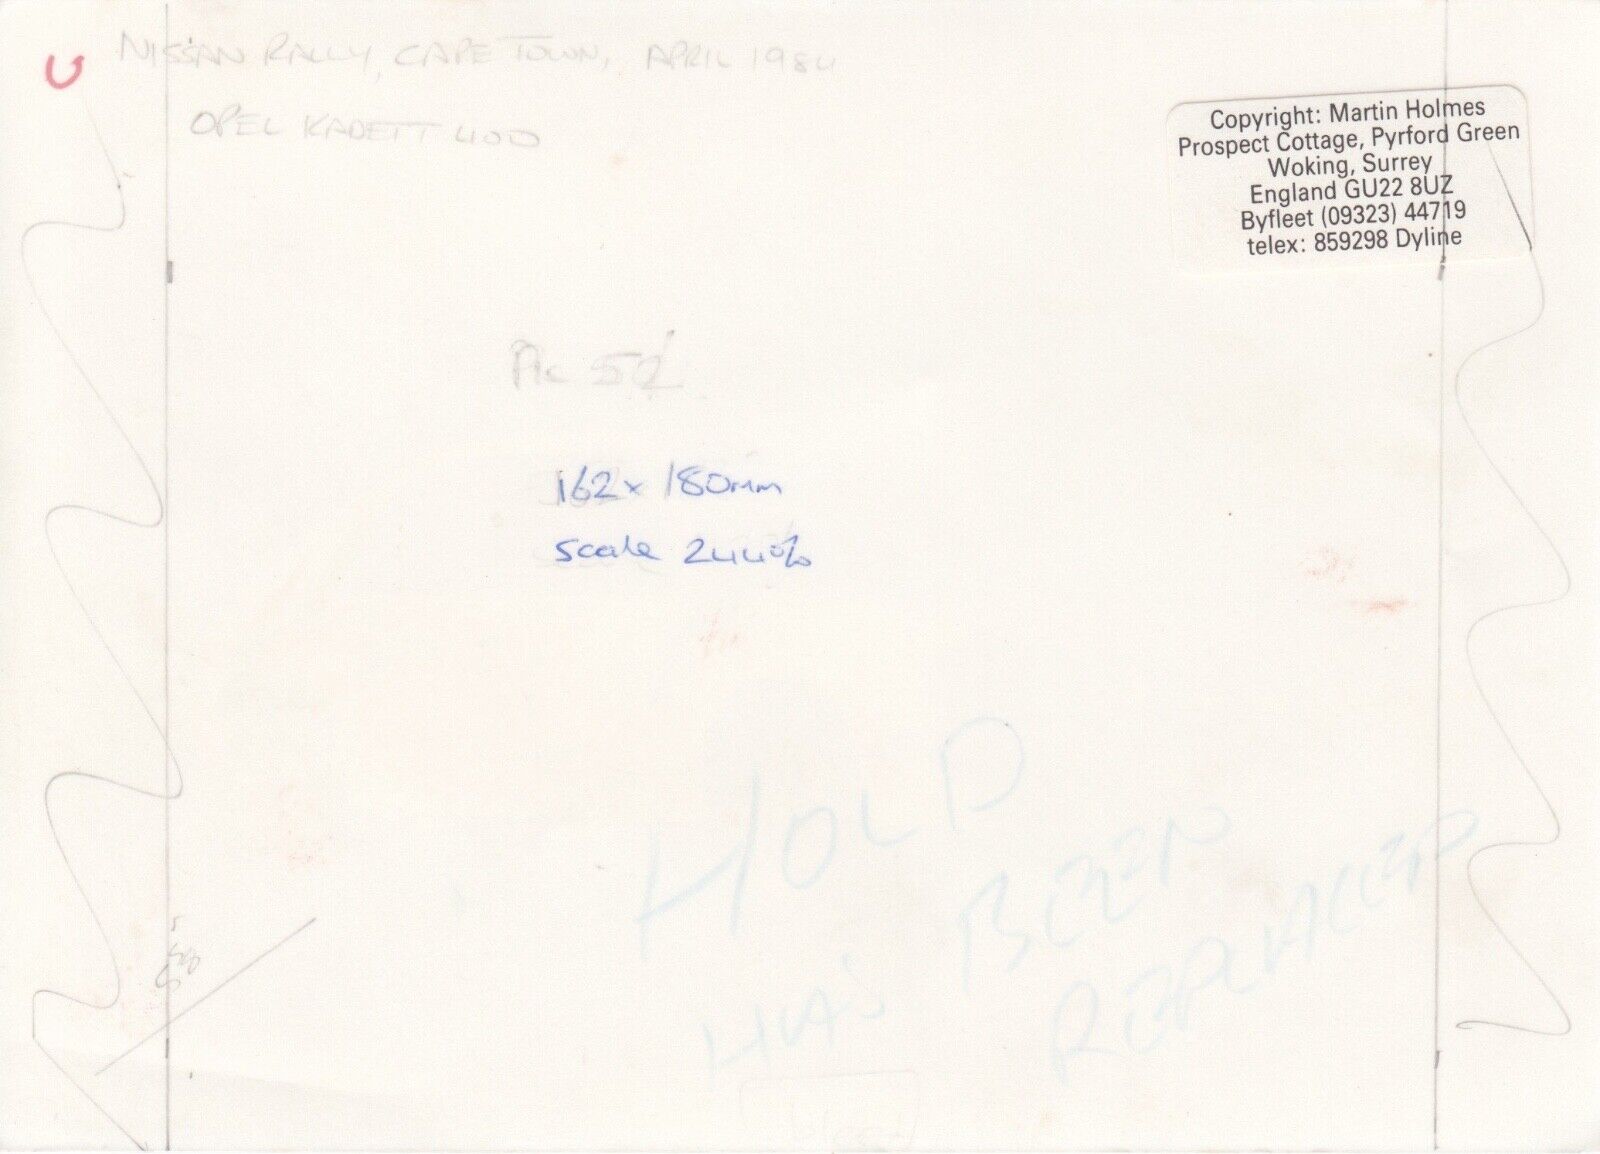 NISSAN RALLY, CAPE TOWN, APRIL 1984
OPEL KADETT 400
Copyright: Martin Holmes
Prospect Cottage, Pyrford Green
Woking, Surrey
England GU22 8UZ
Byfleet (09323) 44719
telex: 859298 Dyline
Pic 52
162 x 180mm
scale 244%
HOLD
HAS BEEN
REPLACED